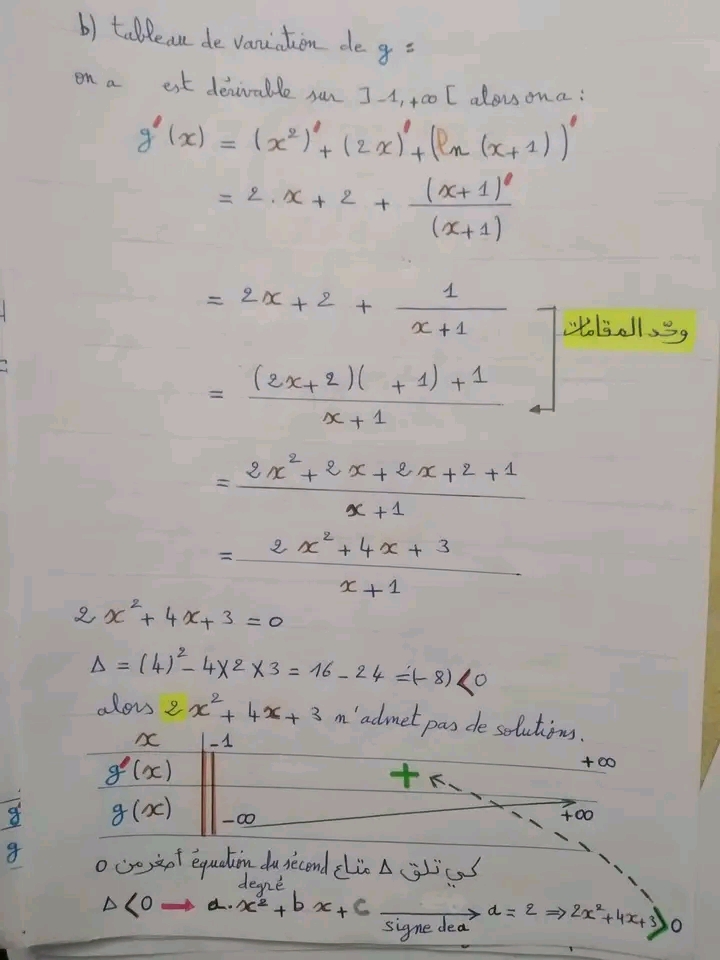 b) tableau de variation de g :
on a est dérivable sur ]-1, +∞[ alors on a :
g'(x) = (x²)' + (2x)' + (ln (x+1))'
= 2.x + 2 + (x+1)' / (x+1)
= 2x + 2 + 1 / x+1
وحّد المقامات
= (2x+2)( +1) +1 / x+1
= 2x² + 2x + 2x + 2 + 1 / x+1
= 2x² + 4x + 3 / x+1
2x² + 4x + 3 = 0
Δ = (4)² - 4x2x3 = 16 - 24 = (-8) < 0
alors 2x² + 4x + 3 n'admet pas de solutions.
x -1 +∞
g'(x) +
g(x) -∞ +∞
كي تلق Δ متاع équation du sécond degré أصغر من 0
Δ<0 → a.x² + bx + c → signe de a a = 2 ⇒ 2x²+4x+3 > 0
g
g